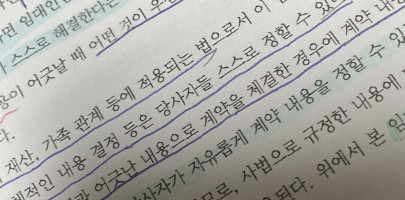 면 임대인은
스스로 해결한다는
이 어긋날 때 어떤 것이 우선
재산, 가족 관계 등에 적용되는 법으로서 이
체적인 내용 결정 등은 당사자들 스스로 정할 수 있
과 어긋난 내용으로 계약을 체결한 경우에 계약 내용
사자가 자유롭게 계약 내용을 정할 수 있
므로, 사법으로 규정한 내용에
된다. 위에서 본 임